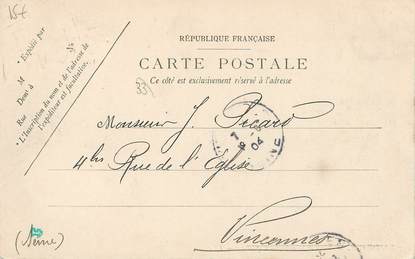 15€
RÉPUBLIQUE FRANÇAISE
CARTE POSTALE
Ce côté est exclusivement réservé à l'adresse
* Expédié par
M
Demt à
Rue
N°
* L'inscription du nom et de l'adresse de
l'expéditeur est facultative.
33
Monsieur J. Picard
4 bis Rue de l'Eglise
Vincennes
(Seine)
7
04